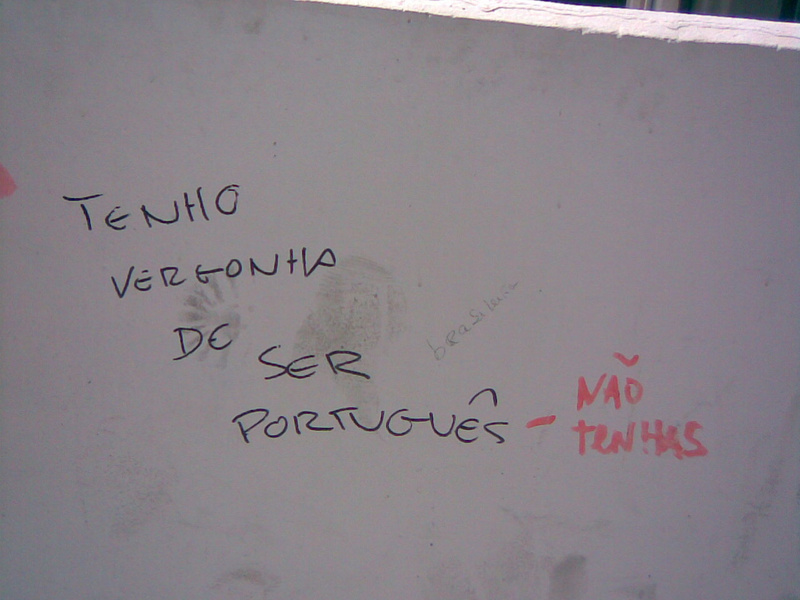 TENHO
VERGONHA
DE SER
PORTUGUÊS - NÃO
TENHAS